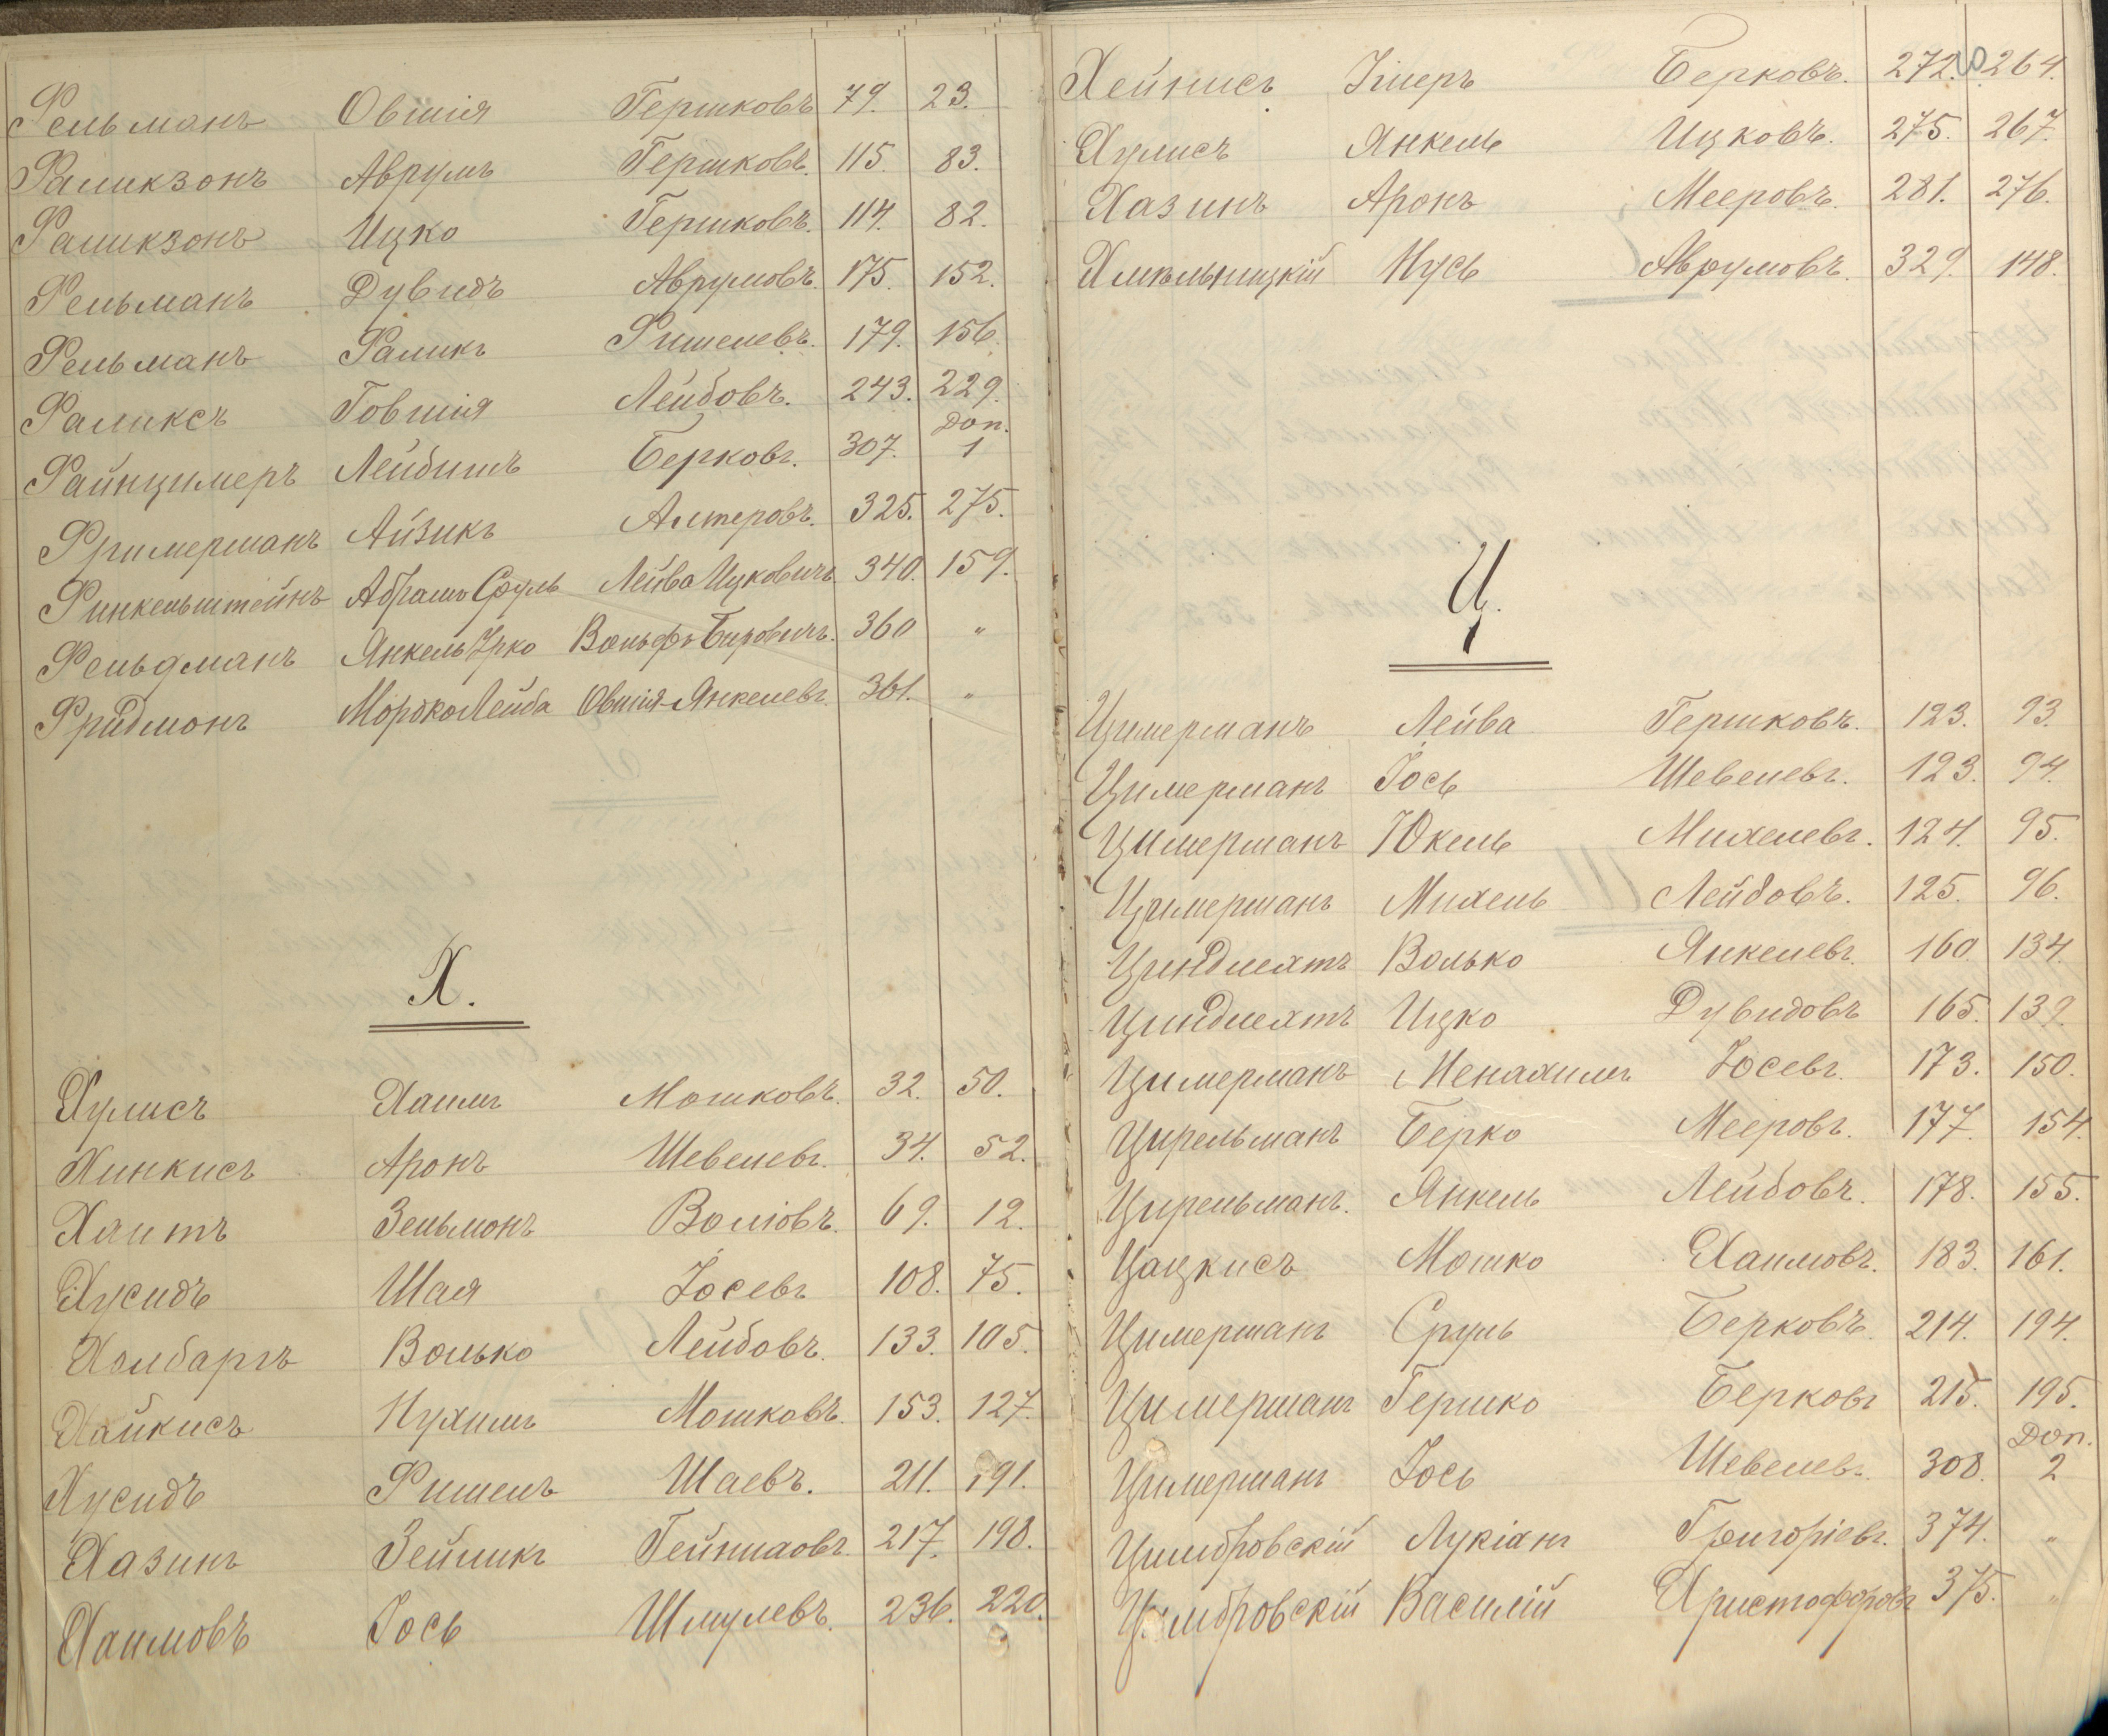 Фельманъ Овшія Гершковъ 79. 23.
Фаликзонъ Аврумъ Гершковъ. 115. 83.
Фаликзонъ Ицко Гершковъ. 114. 82.
Фельманъ Дувидъ Аврумовъ. 175. 152.
Фельманъ Фаликъ Фишелевъ. 179. 156.
Фаликсъ Говшія Лейбовъ. 243. 229.
Доп.
Файнцимеръ Лейбишъ Берковъ. 307. 1
Фримерманъ Айзикъ Алтеровъ. 325. 275.
Финкельштейнъ Абрамъ Сруль Лейва Ицковичъ 340. 159.
Фельдманъ Янкель Урко Вольфъ Беровичъ. 360 "
Фридмонъ Мордко Лейба Овшія-Янкелевъ. 361. "
Х.
Хулисъ Хаимъ Мошковъ. 32. 50.
Хинкисъ Аронъ Шевелевъ. 34. 52.
Хаитъ Зельмонъ Воліовъ. 69. 12.
Хусидъ Шая Іосевъ 108. 75.
Холбаргъ Волько Лейбовъ. 133. 105.
Хайкисъ Нухимъ Мошковъ. 153. 127.
Хусидъ Фишель Шаевъ. 211. 191.
Хазинъ Зейликъ 217. 198.
Хаимовъ Іось Шмулевъ. 236. 220.
Хейнисъ Берковъ. 272. 264.
Хулисъ Янкель Ицковъ. 275. 267.
Хазинъ Аронъ Мееровъ. 281. 276.
Хмѣльницкій Нусь Аврумовъ. 329. 148.
Ц.
Цимерманъ Лейва Гершковъ. 123. 93.
Цимерманъ Іось Шевелевъ. 123. 94.
Цимерманъ Юкель Михелевъ. 124. 95.
Цимерманъ Михель Лейбовъ. 125. 96.
Циндлехтъ Волько Янкелевъ. 160. 134.
Циндлехтъ Ицко Дувидовъ 165. 139.
Цимерманъ Менахимъ Іосевъ. 173. 150.
Цирельманъ Берко Мееровъ. 177. 154.
Цирельманъ. Янкель Лейбовъ. 178. 155.
Цацкисъ Мошко Хаимовъ. 183. 161.
Цимерманъ Сруль Берковъ 214. 194.
Цимерманъ Гершко Берковъ 215. 195.
Доп.
Цимерманъ Іось Шевелевъ. 308. 2
Цимбровскій Лукіанъ Григоріевъ. 374. "
Цимбровскій Василій Христофоровъ 375. "